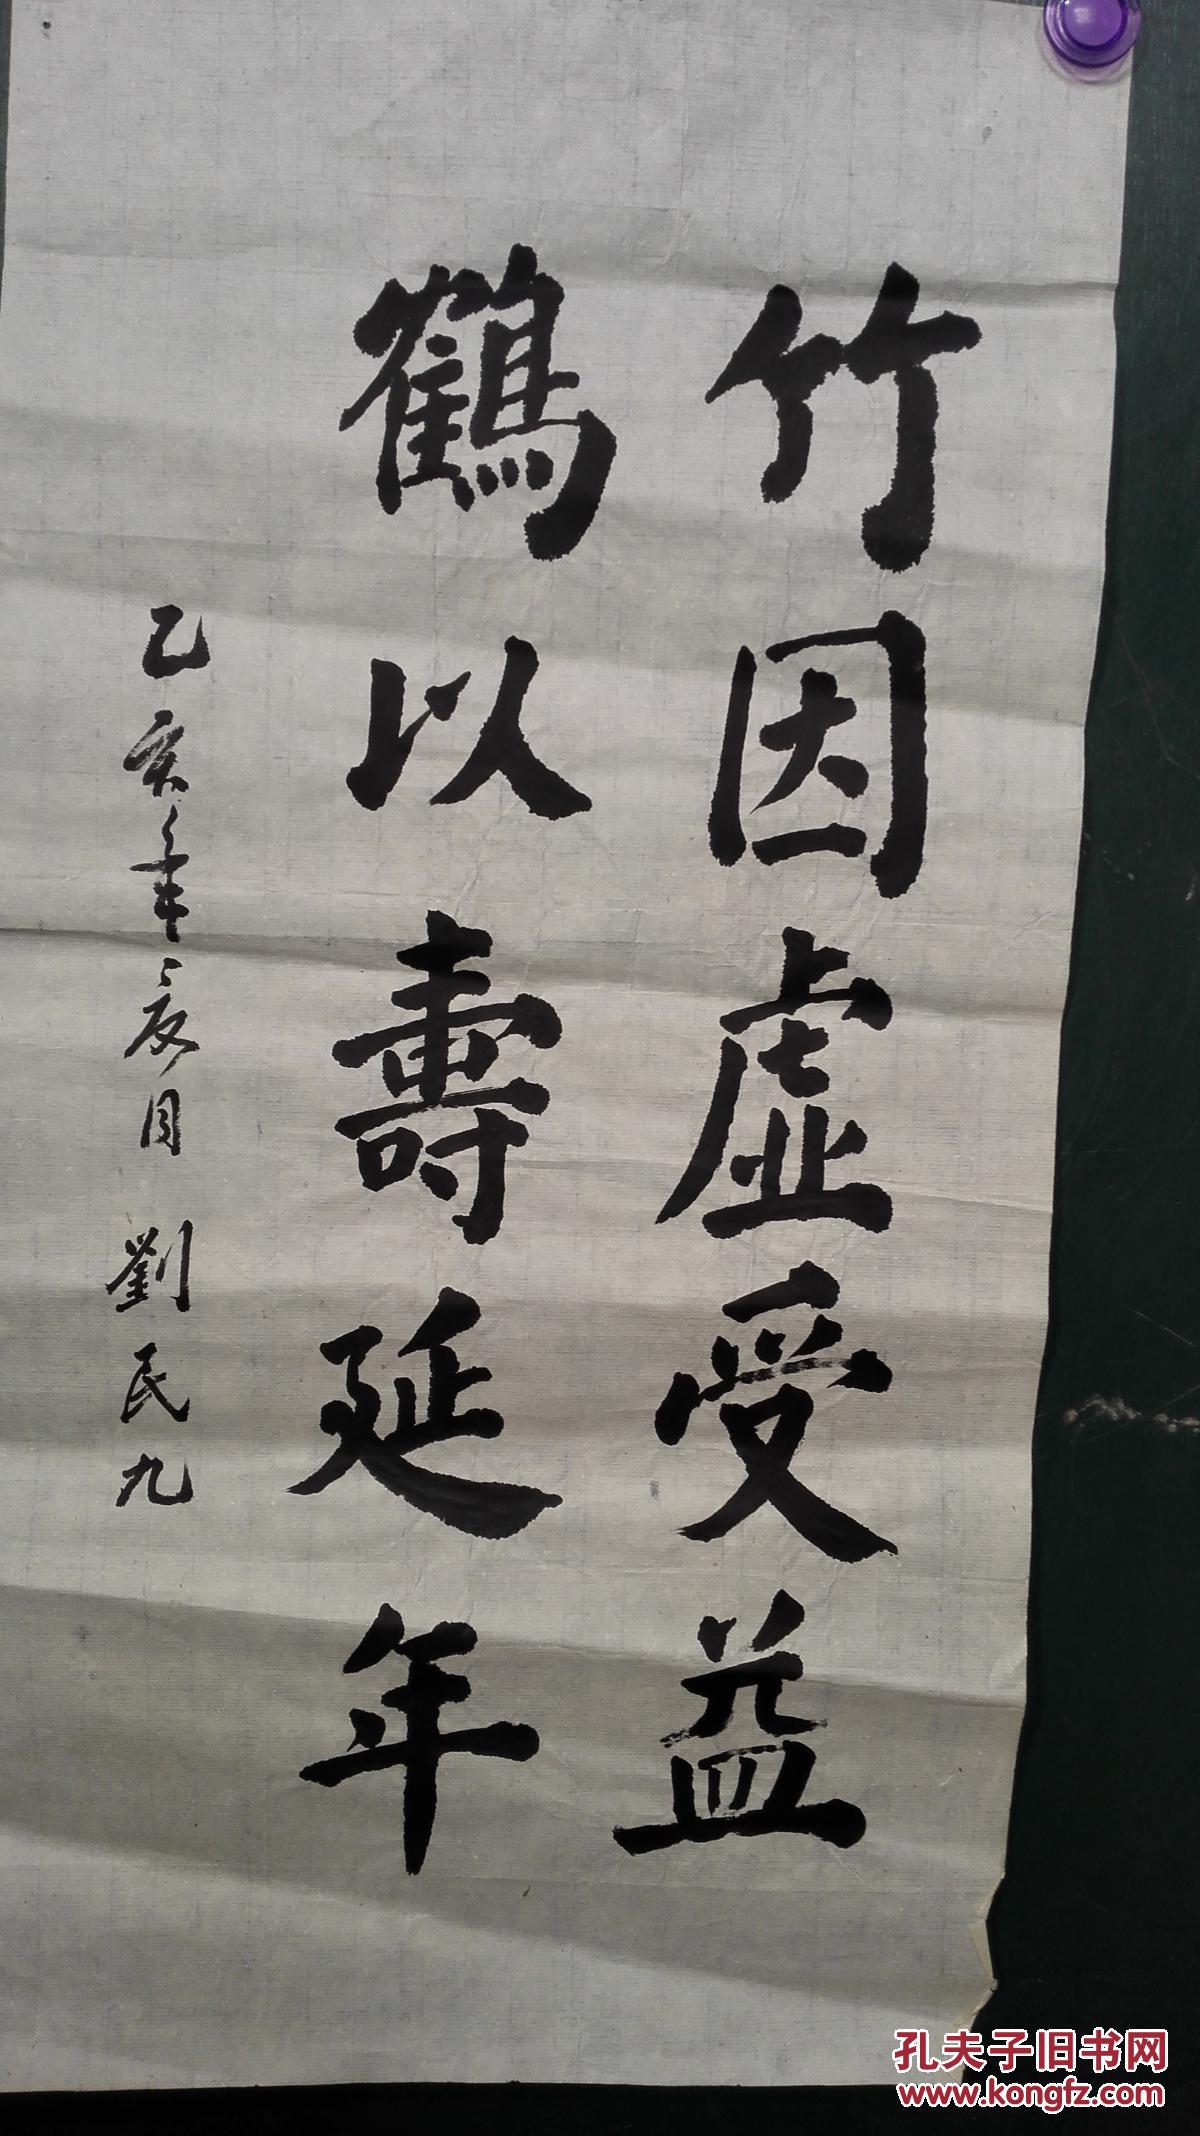 竹因虚受益
鶴以壽延年
乙亥年之夜月 劉民九
孔夫子旧书网
www.kongfz.com